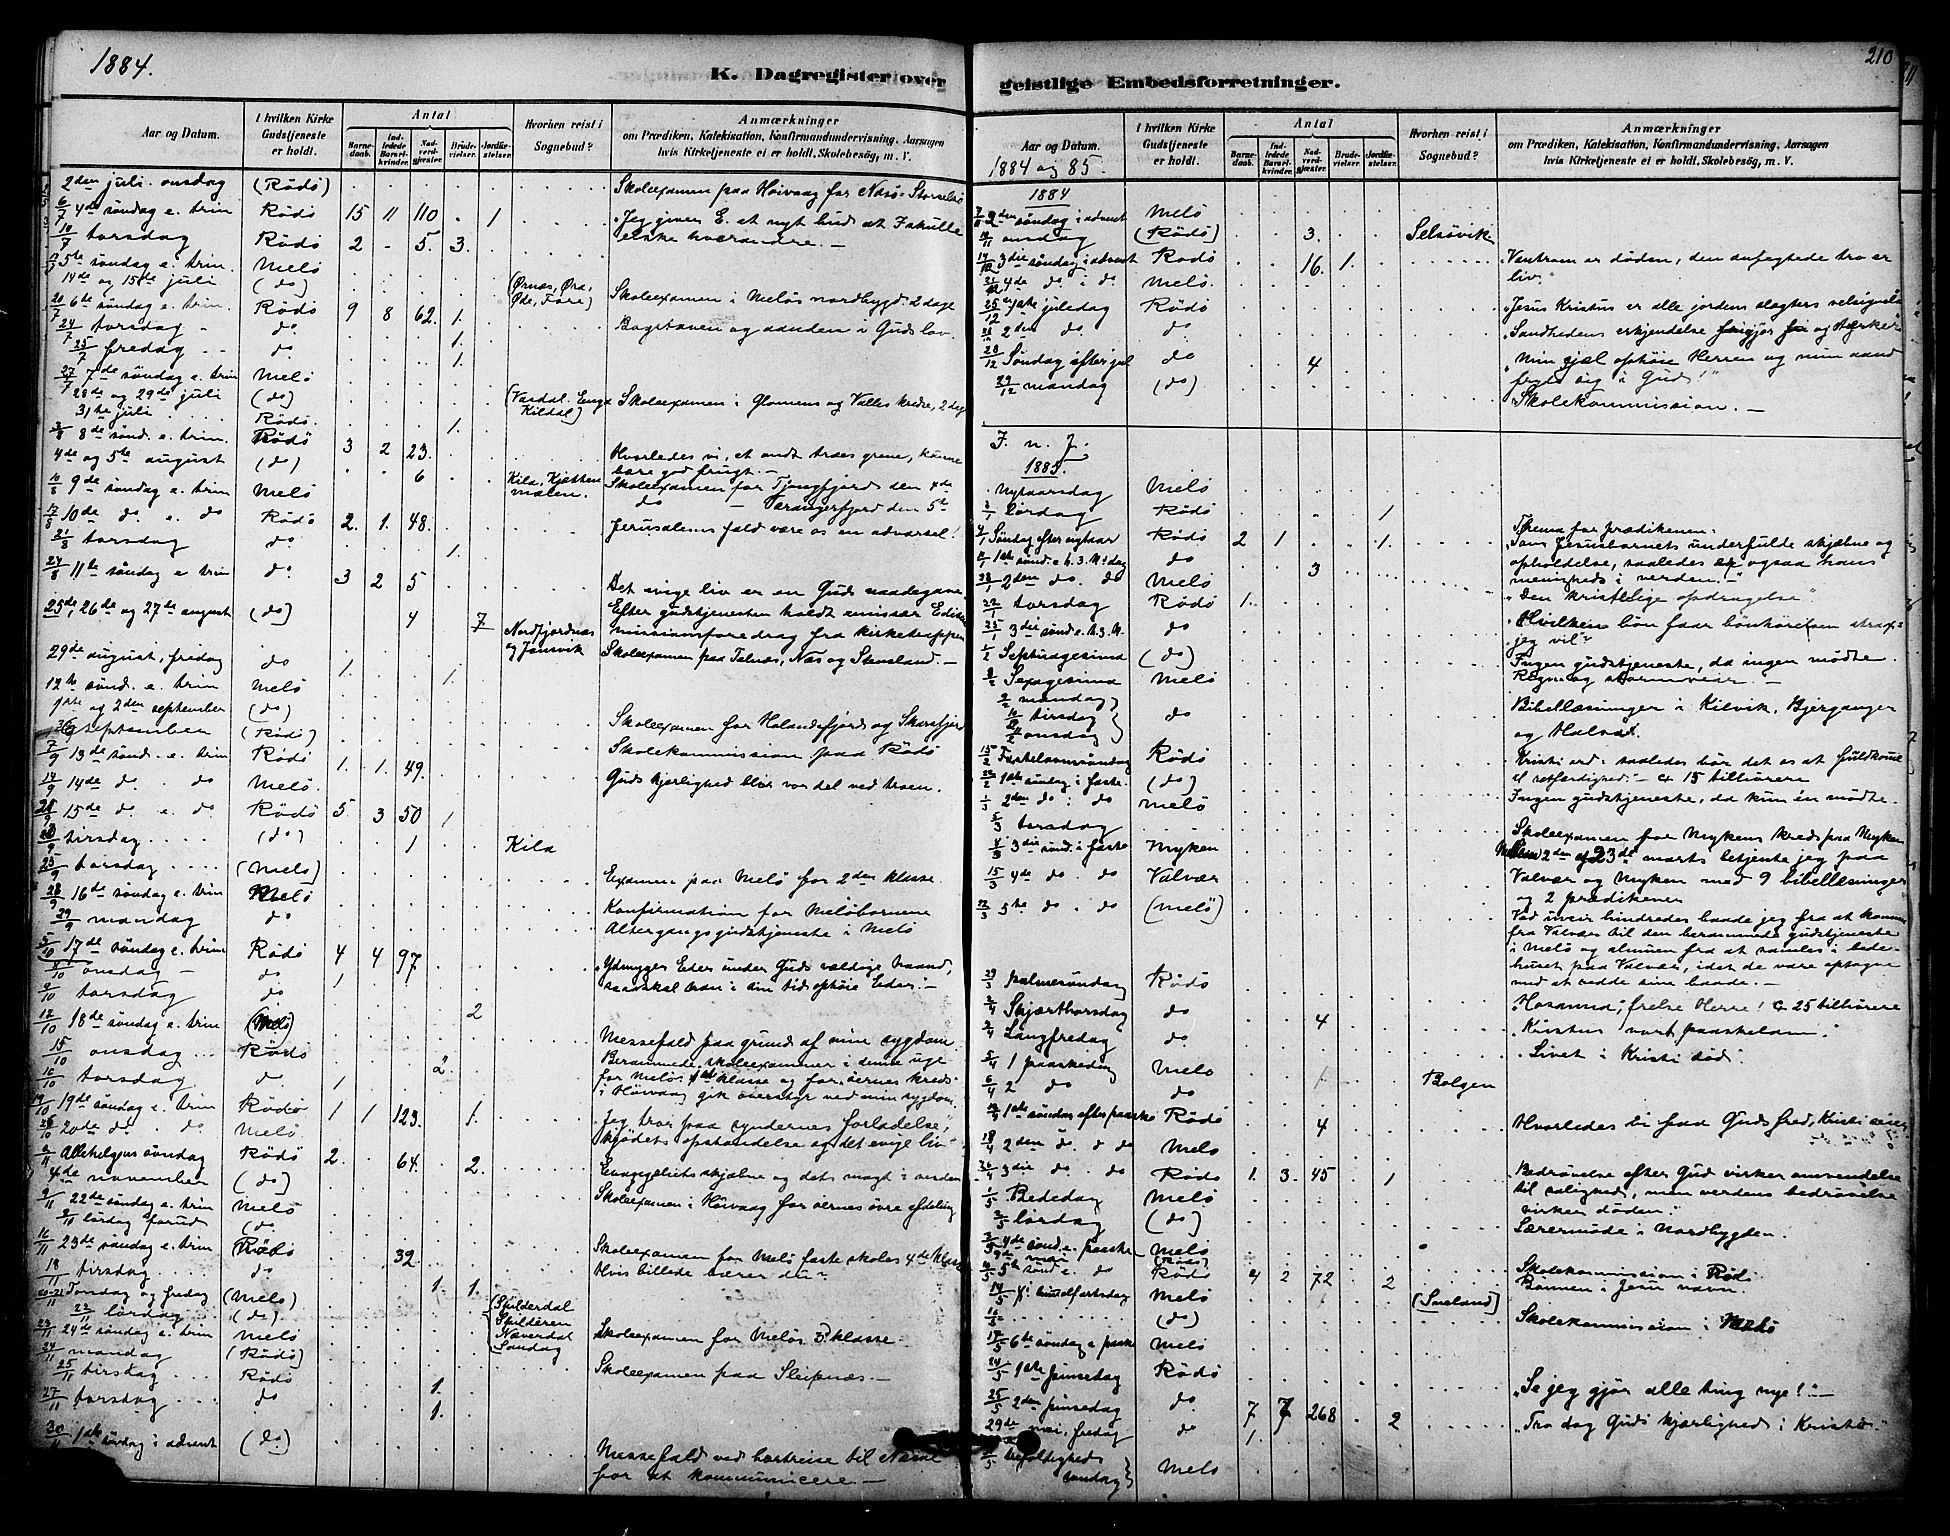 1884.
K. Dagregister over
Aar og Datum.
I hvilken Kirke Gudstjeneste er holdt.
Antal
Barnedaab.
Indledede Barselkvinder.
Nadverdgjæster.
Brudevielser.
Jordfæstelser.
Hvorhen reist i Sognebud?
Anmærkninger
om Prædiken, Katekisation, Konfirmandundervisning, Aarsagen
hvis Kirketjeneste ei er holdt, Skolebesøg, m. V.
2den juli. onsdag (Rödö) Skoleexamen paa Höivaag for Nesö-Storselsö
6/7 4de söndag e. trin Rödö 15 11 110 . 1 "Jeg giver E. et nyt bud at I skulle
10/7 torsdag Rödö 2 - 5. 3. elske hverandre. -
13/7 5te söndag e. trin. Melö
14de og 15de juli (do) (Ørnæs, Øra, Øde, Fore) Skoleexamen i Melös nordbygd 2 dage
20/7 6te söndag e. trin. Rödö 9 8 62. 1. Bogstaven og aanden i Guds lov
24/7 torsdag - do 1.
25/7 fredag - - do. 1.
27/7 7de söndag e. trin Melö
28de og 29de juli (do) Kildal) Skoleexamen i Glomens og Valles kredse, 2 dage
31te juli Rödö. 1.
3/8 8de sönd. e. trin. Rödö 3 2 23. Hvorledes vi, et ondt træes grene, kunne
4de og 5te august (do) 6 bære god frugt. -
10/8 9de söndag e. trin Melö Skoleexamen for Tjongsfjord den 4de
do - Værangerfjord den 5te
17/8 10de do. e. do Rödö 2. 1. 48. Jerusalems fald være os en advarsel!
21/8 torsdag do 1.
24/8 11te söndag e. trin do. 3 2 5 Det evige liv er en Guds naadegave
25de, 26de og 27de august (do) 4 7 Nordfjordnæs og Jønsvik Efter gudstjenesten holdt emissær
missionsforedrag fra kirketrappen
29de august, fredag do 1. 1. Skoleexamen paa Telnæs, Næs og Stensland. -
12te sönd. e. trin Melö
1ste og 2den september (do) Skoleexamen for Holandsfjord og
september (Rödö) Skolekommission paa Rödö
7/9 13de sönd. e. trin Rödö 1. 1. 49. Guds kjærlighed blir vor del ved troen.
14/9 14de do. . do Melö.
21/9 15de do. e. do Rödö 5. 3 50 1
tirsdag (do) 1 Kila
25/9 torsdag (Melö) Examen paa Melö for 2den klasse.
28/9 16de söndag e. trin Melö Konfirmation for Meløbørnene
29/9 mandag do Altergangsgudstjeneste i Melö
5/10 17de söndag e. trin Rödö 4 4 97 "Ydmyger Eder under Guds vældige haand,
8/10 onsdag - do 1
9/10 torsdag do 2
12/10 18de söndag e. trin (Melö) Messefald paa grund af min sygdom
15/10 onsdag Rödö 2. Berammede skoleexamener i denne uge
16/10 torsdag do 1 for Melö 1ste klasse og for øernes kreds
i Höivaag gik overstyr ved min sygdom.
19/10 19de söndag e. trin Rödö 1 1 123. 1. "Jeg tror paa syndernes forladelse,
26/10 20de do. . do Melö. kjødets opstandelse og det evige liv"
2/11 Allehelgens söndag Rödö 2. 64. 2. Evangeliets skjæbne og dets magt i verden
4de november (do) Skoleexamen i Höivaag for øernes øvre afdeling
9/11 22de söndag e. trin Melö
8/11 lördag forud (do
16/11 23de söndag e. trin Rödö 32. Skoleexamen for Melö faste skoles 4de klasse
18/11 tirsdag do 1. 1. Hvis billede bærer du?
20-21/11 Torsdag og fredag (Melö)
22/11 lördag (do) (Spilderdal Spilderen Næverdal Sandag Skoleexamen for Melös 3. klasse
23/11 24de söndag e. trin Melö
24/11 mandag (Rödö) Skoleexamen paa Sleipnæs. -
25/11 tirsdag Rödö 1.
27/11 torsdag do 1.
30/11 1ste söndag i advent (do) Messefald ved bortreise til
for at kommunicere. -
geistlige Embedsforretninger.
210
Aar og Datum.
1884 og 85.
I hvilken Kirke Gudstjeneste er holdt.
Antal
Barnedaab.
Indledede Barselkvinder.
Nadverdgjæster.
Brudevielser.
Jordfæstelser.
Hvorhen reist i Sognebud?
Anmærkninger
om Prædiken, Katekisation, Konfirmandundervisning, Aarsagen
hvis Kirketjeneste ei er holdt, Skolebesøg, m. V.
1884
2den söndag i advent Melö
onsdag (Rödö) 3. Selsövik
14/12 3die söndag i advent Rödö 16. 1. "Vantroen er döden, den anfægtede tro er
21/12 4de do i do Melö. liv."
25/12 1ste juledag Rödö "Jesus Kristus er alle jordens slægters velsignelse
26/12 2den do do "Sandhedens erkjendelse og
28/12 Söndag efter jul do 4 "Min sjæl ophöie Herren og min aand
29/12 mandag (do) fryde sig i Gud!"
Skolekommission. -
I. n. J.
1885.
Nytaarsdag Melö
3/1 Lördag Rödö 1
4/1 Söndag efter nytaar Rödö 2 1 1. Thema for prædikenen:
1ste sönd. e. h. 3. K. dag do 3 "Som Jesusbarnets underfulde skjæbne og
18/1 2den do. do Melö opholdelse, saaledes og ogsaa hans
menigheds i verden."
22/1 torsdag Rödö 1. "Den kristelige opdragelse"
25/1 3die sönd. e. h. 3. K. do "Hvilken bön faar bönhörelsen strax:
jeg vil"?
1/2 Septuagesima (do) Ingen gudstjeneste, da ingen mödte.
8/2 Sexagesima Melö Regn og stormveir -
9/2 mandag
10/2 tirsdag do Bibellæsninger i Kilvik, Bjerganger
11/2 onsdag og Halvei.
15/2 Fastelavnssöndag Rödö Kristi ord: saaledes bör det os at fuldkomme
22/2 1ste söndag i faste (do) al retfærdighed. - ca 15 tilhörere
1/3 2den do i do Melö Ingen gudstjeneste, da kun én mödte.
5/3 torsdag
3die sönd. i faste Myken Skoleexamen for Mykens kreds paa Myken
Mellem 2den og 23de marts betjente jeg paa
15/3 4de do. do Valvær Valvær og Myken med 9 bibellæsninger
og 2 prædikener
22/3 5te do. do (Melö) Ved uveir hindredes baade jeg fra at komme
fra Valvær til den berammede gudstjeneste
i Melö og almuen fra at samles i bedehuset
paa Valvær, idet de vare optagne
med at redde sine baade. -
29/3 Palmesöndag Rödö Hosanna, frelse Herre! ca 25 tilhörere
2/4 Skjærthorsdag do 4 "Kristus vort paaskelam."
3/4 Langfredag do "Livet i Kristi död."
5/4 1 paaskedag Melö
6/4 2 do do 1 Bolgen
12/4 1ste söndag efter paaske Rödö 4 Hvorledes bi paa Guds fred, Kristi
2den do. do Melö
26/4 3die do. do Rödö 1. 3. 45 1 "Bedrövelse efter Gud virker omvendelse
1/5 Bededag Melö til salighed, men verdens bedrövelse
2/5 lördag (do) virker döden."
Læremöde i Nordbygden.
3/5 4de sönd. e. paaske Melö
(Rödö) Skolekommission i Rödö
10/5 5te sönd e. do Rödö 4 2 72 2 Bönnen i Jesu navn.
14/5 himmelfartsdag Melö (Sneland)
(do) Skolekommission i Melö
17/5 6te söndag e. paaske Melö
24/5 1ste pinsedag Rödö "Se jeg gjör alle ting nye!"
25/5 2den pinsedag do. 7 7 268 2 "Tro dog Guds kjærlighed i Kristo."
29de mai, fredag do 1.
31/5 trefoldigheds söndag Melö